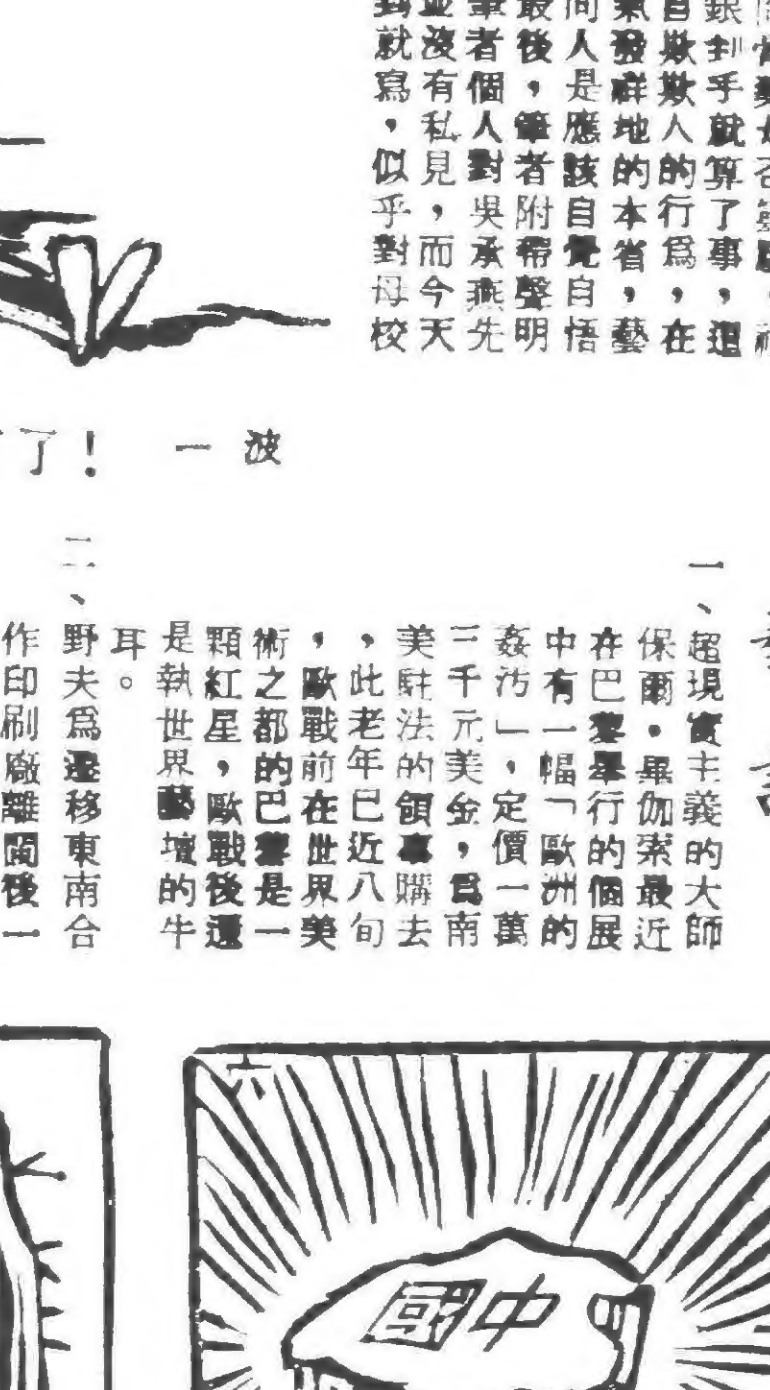 銀到手就算了事,還
自欺欺人的行爲,在
氣發祥地的本省,藝
同人是應該自覺自悟
最後,筆者附帶聲明
筆者個人對吳承燕先
並沒有私見,而今天
到就寫,似乎對母校
一波
了!
一、超現實主義的大師
保爾·畢伽索最近
在巴黎舉行的個展
中有一幅「歐洲的
姦污」,定價一萬
三千元美金,爲南
美駐法的領事購去
,此老年已近八旬
,歐戰前在世界美
術之都的巴黎是一
顆紅星,歐戰後還
是執世界藝壇的牛
耳。
二、野夫爲遷移東南合
作印刷廠離閩後一
六
國中